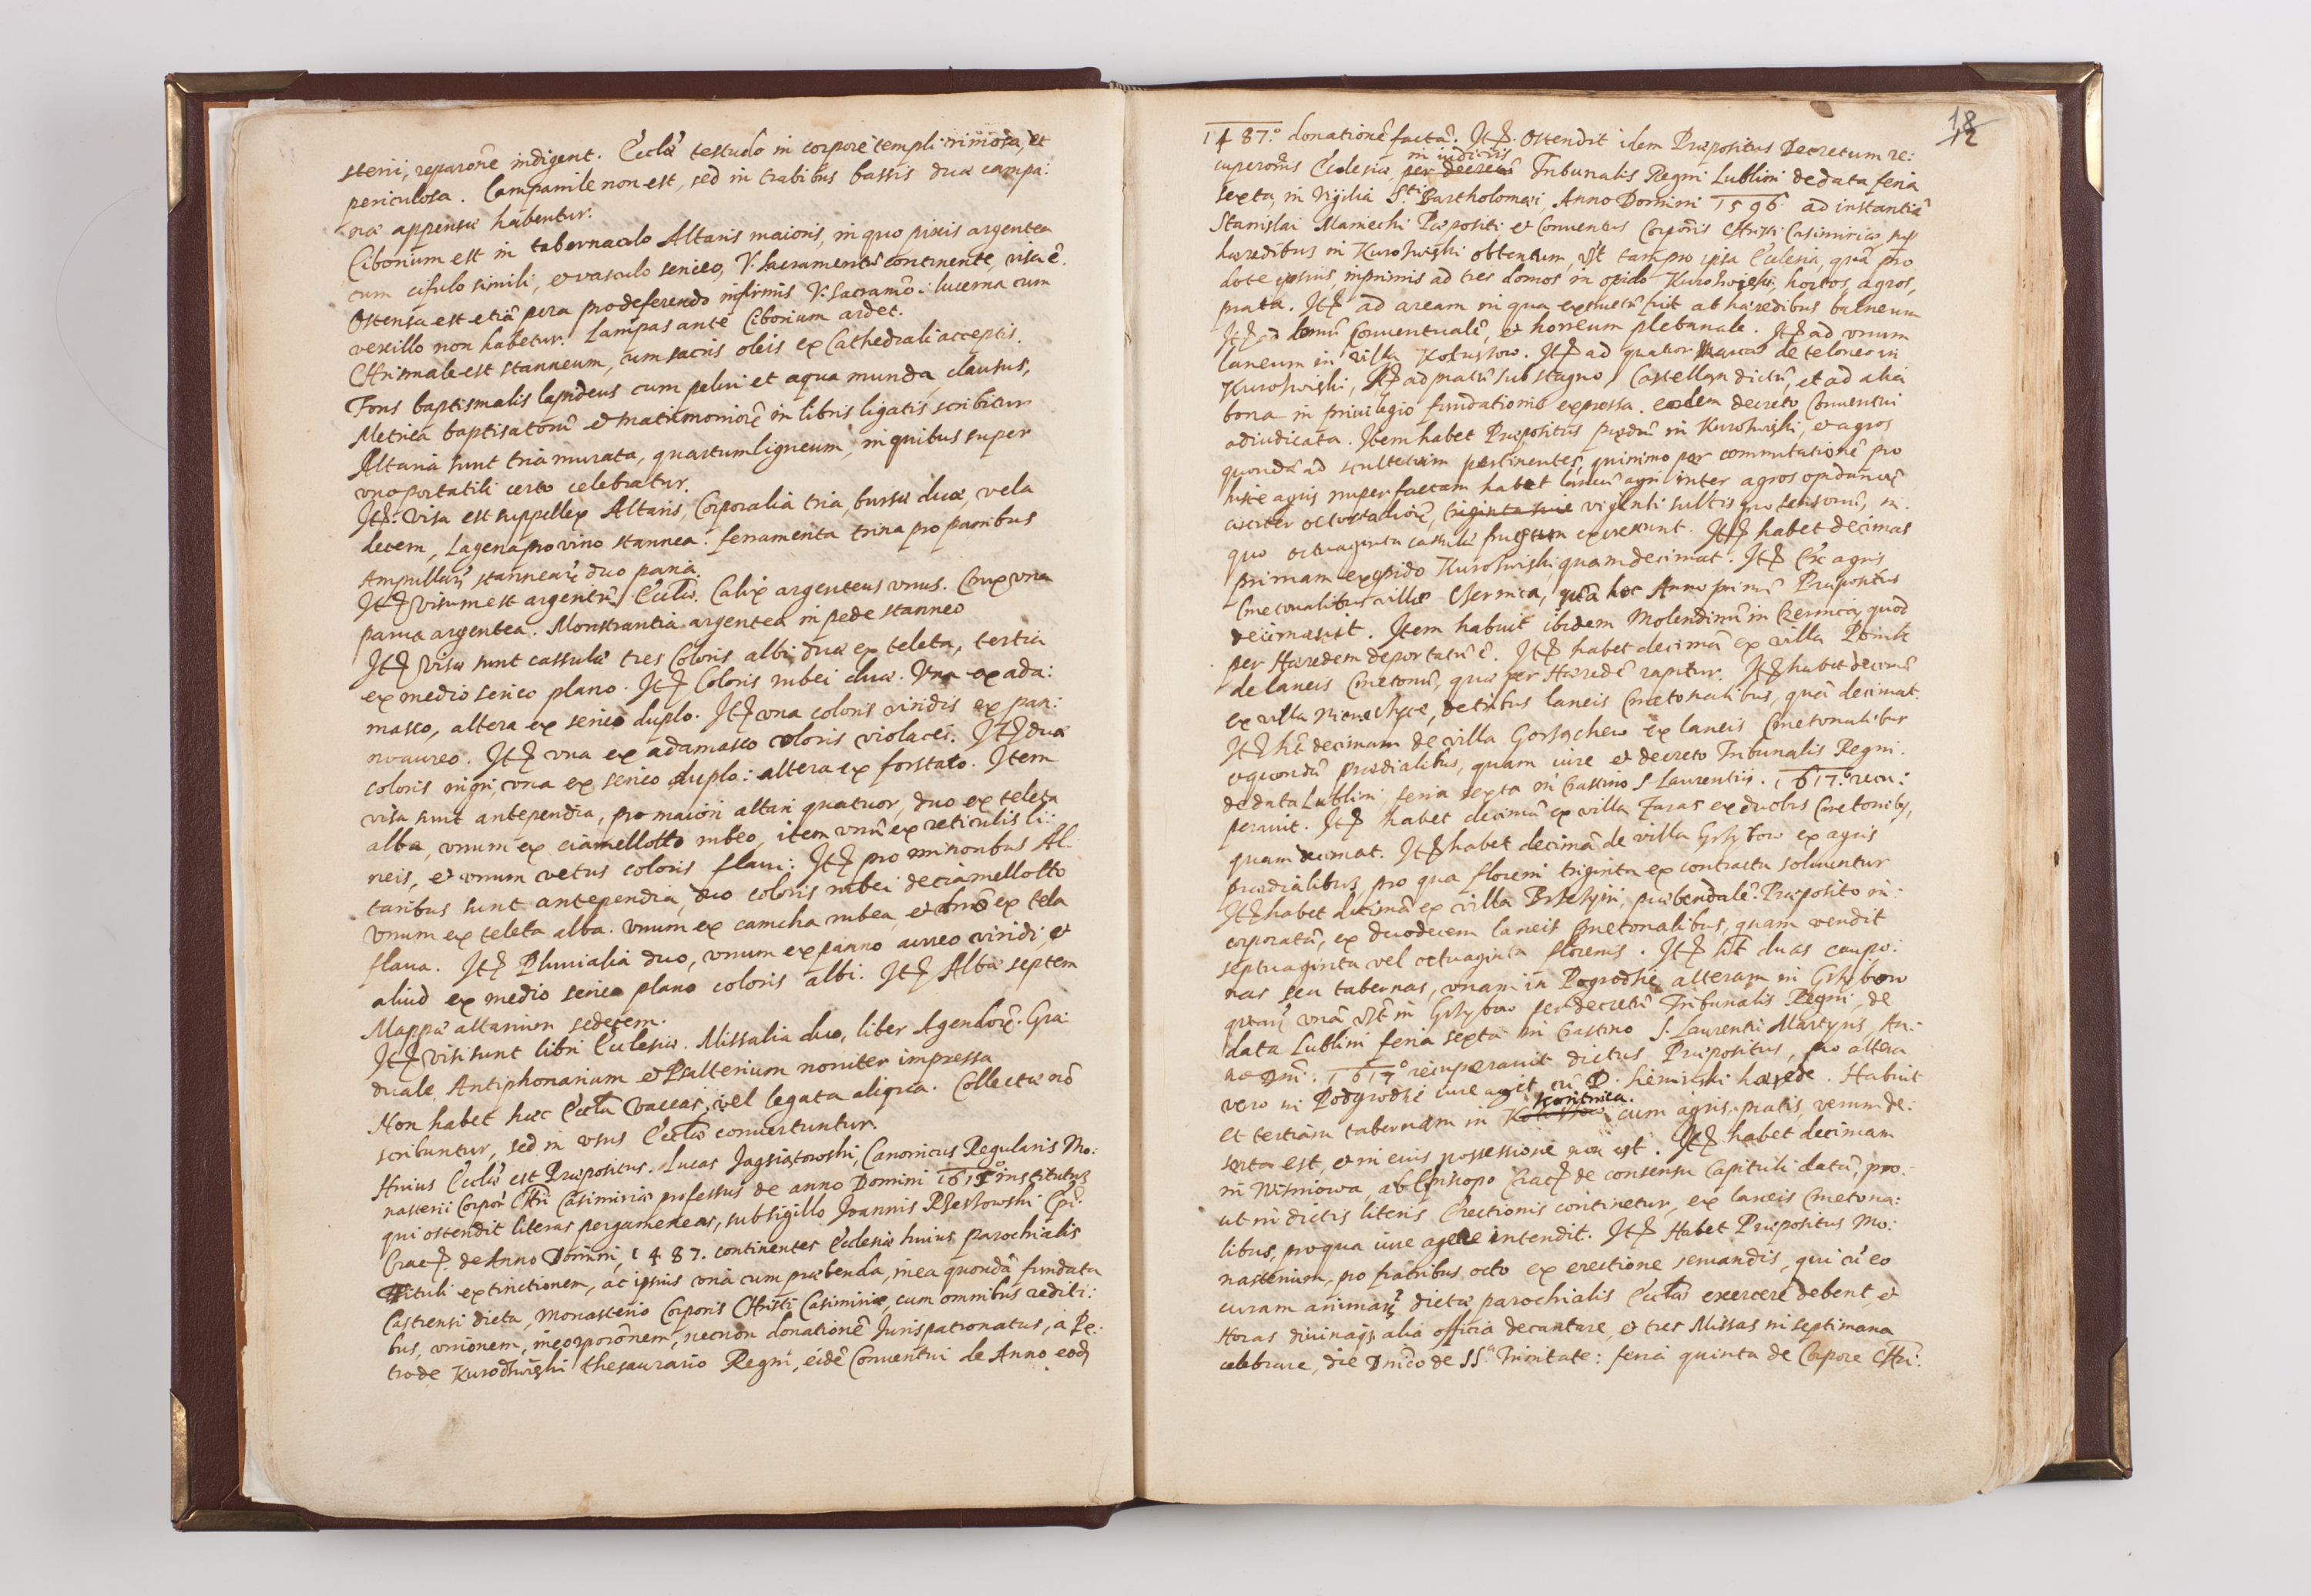 sterii, reparaoñe indigent. Eccłæ testudo in corpore templi rimosa, et
periculosa. Campanile non est, sed in trabibus bassis duæ campa:
næ appensæ habentur.
Ciborium est in tabernaculo Altaris maioris, in quo pixis argentea
cum cifulo simili, et vasculo sericeo, V. Sacramentũ continente, visa ẽ.
Ostensa est etiã pera pro deferendo infirmis V. Sacramõ: lucerna cum
vexillo non habetur. Lampas ante Ciborium ardet.
Chrismale est stanneum, cum sacris oleis ex Cathedrali acceptis.
Fons baptismalis lapideus cum pelui et aqua munda, clausus,
Metrica baptisatorũ et matrimoniorũ in libris ligatis scribitur
Altaria sunt tria murata, quartum ligneum, in quibus super
vno portatili certo celebratur.
Itẽ: Visa est suppellex Altaris, Corporalia tria, bursæ duæ, vela
decem, Lagena pro vino stannea. ferramenta trina pro panibus
Ampullarũ stannearũ duo paria.
Itẽ visum est argentũ Eccłæ. Calix argenteus vnus. Crux vna
parua argentea. Monstrantia argentea in pede stanneo
Itẽ visæ sunt cassulæ tres Coloris albi, duæ ex teleta, tertia
ex medio serico plano. Itẽ Coloris rubei duæ. Vna ex ada:
masco, altera ex serico duplo. Itẽ vna coloris viridis ex pan:
no aureo. Itẽ vna ex adamasco coloris violacei. Itẽ duæ
coloris nigri, vna ex serico duplo: altera ex forstato. Item
visa sunt antependia, pro maiori altari quatuor, duo ex teleta
alba, vnum ex ciamellotto rubeo, item vnũ ex reticulis li:
neis, et vnum vetus coloris flaui: Itẽ pro minoribus Al:
taribus sunt antependia, duo coloris rubei de ciamellotto
Vnum ex teleta alba. Vnum ex camcha rubea, et ex tela
flaua. Itẽ Pluuialia duo, vnum ex panno aureo viridi, et
aliud ex medio serico plano coloris albi. Itẽ Albæ septem
Mappæ altarium sedecem.
Itẽ visi sunt libri Ecclesiæ. Missalia duo, liber Agendorũ. Gra:
duale, Antiphonarium et Psalterium nouiter impressa
Non habet hæc Eccła vaccas, vel legata aliqua. Collectæ nõ
scribuntur, sed in vsus Eccłæ conuertuntur.
Huius Eccłæ est Præpositus. Lucas Jagsiątowski, Canonicus Regularis Mo:
nasterii Corpor Chri Casimiriæ professus de anno Domini institutus
qui ostendit literas pergameneas, sub sigillo Joannis Rzeszowski Epi:
Crac. de Anno Domini, 1487. continentes Ecclesiæ huius parochialis
tituli extinctionem, ac ipsius vnà cum præbenda, in ea quondã fundata
Castrensi dicta, Monasterio Corporis Christi Casimiriæ, cum omnibus rediti:
bus, vnionem, incorporõnem, necnon donationẽ Jurispatronatus, a Pe:
tro de Kurozwięki thesaurario Regni, eidẽ Conuentui de Anno eod
18
12
1487.° donationẽ factã. Itẽ. Ostendit idem Præpositus Decretum re:
cuperoñis Ecclesiæ, in iudiciis per decretũ Tribunalis Regni Lublini de data feria
sexta, in Vigilia S.ti Bartholomæi Anno Domini 1596. ad instantiã
Stanislai Præpositi et Conuentus Corporis Christi Casimiriæ
hæredibus in Kurozwięki obtentum, tam pro ipsa Ecclesia, quã pro
dote ipsius, inprimis ad tres domos in opido Kurozwięki, hortos, agros,
prata. Itẽ ad aream in qua exstructũ fuit ab hæredibus balneum
Itẽ ad domũ Conuentualẽ, et horreum plebanale. Itẽ ad vnum
laneum in villa Kotuszow. Itẽ ad quatuor Marcas de teloneo in
Kurozwięki, Itẽ ad pratũ sub stagno, Castellan dictũ, et ad alia
bona in priuilegio fundationis expressa. eodem decreto Conuentui
adiudicata. Item habet Præpositus prædiũ in Kurozwięki, et agros
quondã ad scultetiam pertinentes, quinimo per commutationẽ pro
histe agris nuper factam habet laneũ agri inter agros opidanorũ
circiter octo stadiorũ, viginti sulcis pro sensorũ, in
quo octuaginta cassulæ frugum excrescunt. Itẽ habet decimas
primam ex opido Kurozwięki, quam decimat. Itẽ Ex agris
Cmetonalibus villæ Czernica, quã hoc Anno primũ Præpositus
decimauit. Item habuit ibidem Molendinũ in Czernica, quod
per Hæredem deportatũ ẽ. Itẽ habet decimã ex villa Ponik
de laneis Cmetonũ, quæ per Hæredẽ rapitur. Itẽ habet decimã
ex villa Niemschyce, de tribus laneis Cmetonalibus, quã decimat.
Itẽ hẽt decimam de villa Gorzachew ex laneis Cmetonalibus
et quondã prædialibus, quam iure et decreto Tribunalis Regni.
de data Lublini, feria sexta in Crastino S. Laurentii. 1617.° recu:
perauit. Itẽ habet decimã ex villa Jasas ex duobus Cmetonibus,
quam decimat. Itẽ habet decimã de villa Grzybow ex agris
prædialibus, pro qua floreni triginta ex contractu soluuntur
Itẽ habet decimã ex villa Brzezyni, præbendalẽ Præposito in:
corporatã, ex duodecem laneis Cmetonalibus, quam vendit
septuaginta vel octuaginta florenis. Itẽ hẽt duas caupo:
nas seu tabernas, vnam in Pogrodzie alteram in Grzybow
quarũ vnã in Grzybow per decretũ Tribunalis Regni, de
data Lublini feria sexta in Crastino S. Laurentii Martyris, An:
no Dñi. 1617° recuperauit dictus Præpositus, pro altera
vero in Podgrodzi iure agit, cũ D. Sieninski hærede. Habuit
et tertiam tabernam in Koritnica cum agris, pratis, verum de:
serta est, et in eius possessione non est. Itẽ habet decimam
in Wisniowa, ab Episcopo Crac de consensu Capituli datã, pro
ut in dictis literis Erectionis continetur, ex laneis Cmetona:
libus, pro qua iure agere intendit. Itẽ Habet Præpositus Mo:
nasterium, pro fratribus octo ex erectione seruandis, qui cũ eo
curam animarũ dictæ parochialis Eccłæ exercere debent, et
Horas diuinasq alia officia decantare, et tres Missas in septimana
celebrare, die Dnico de SS.a Trinitate: feria quinta de Corpore Chri: